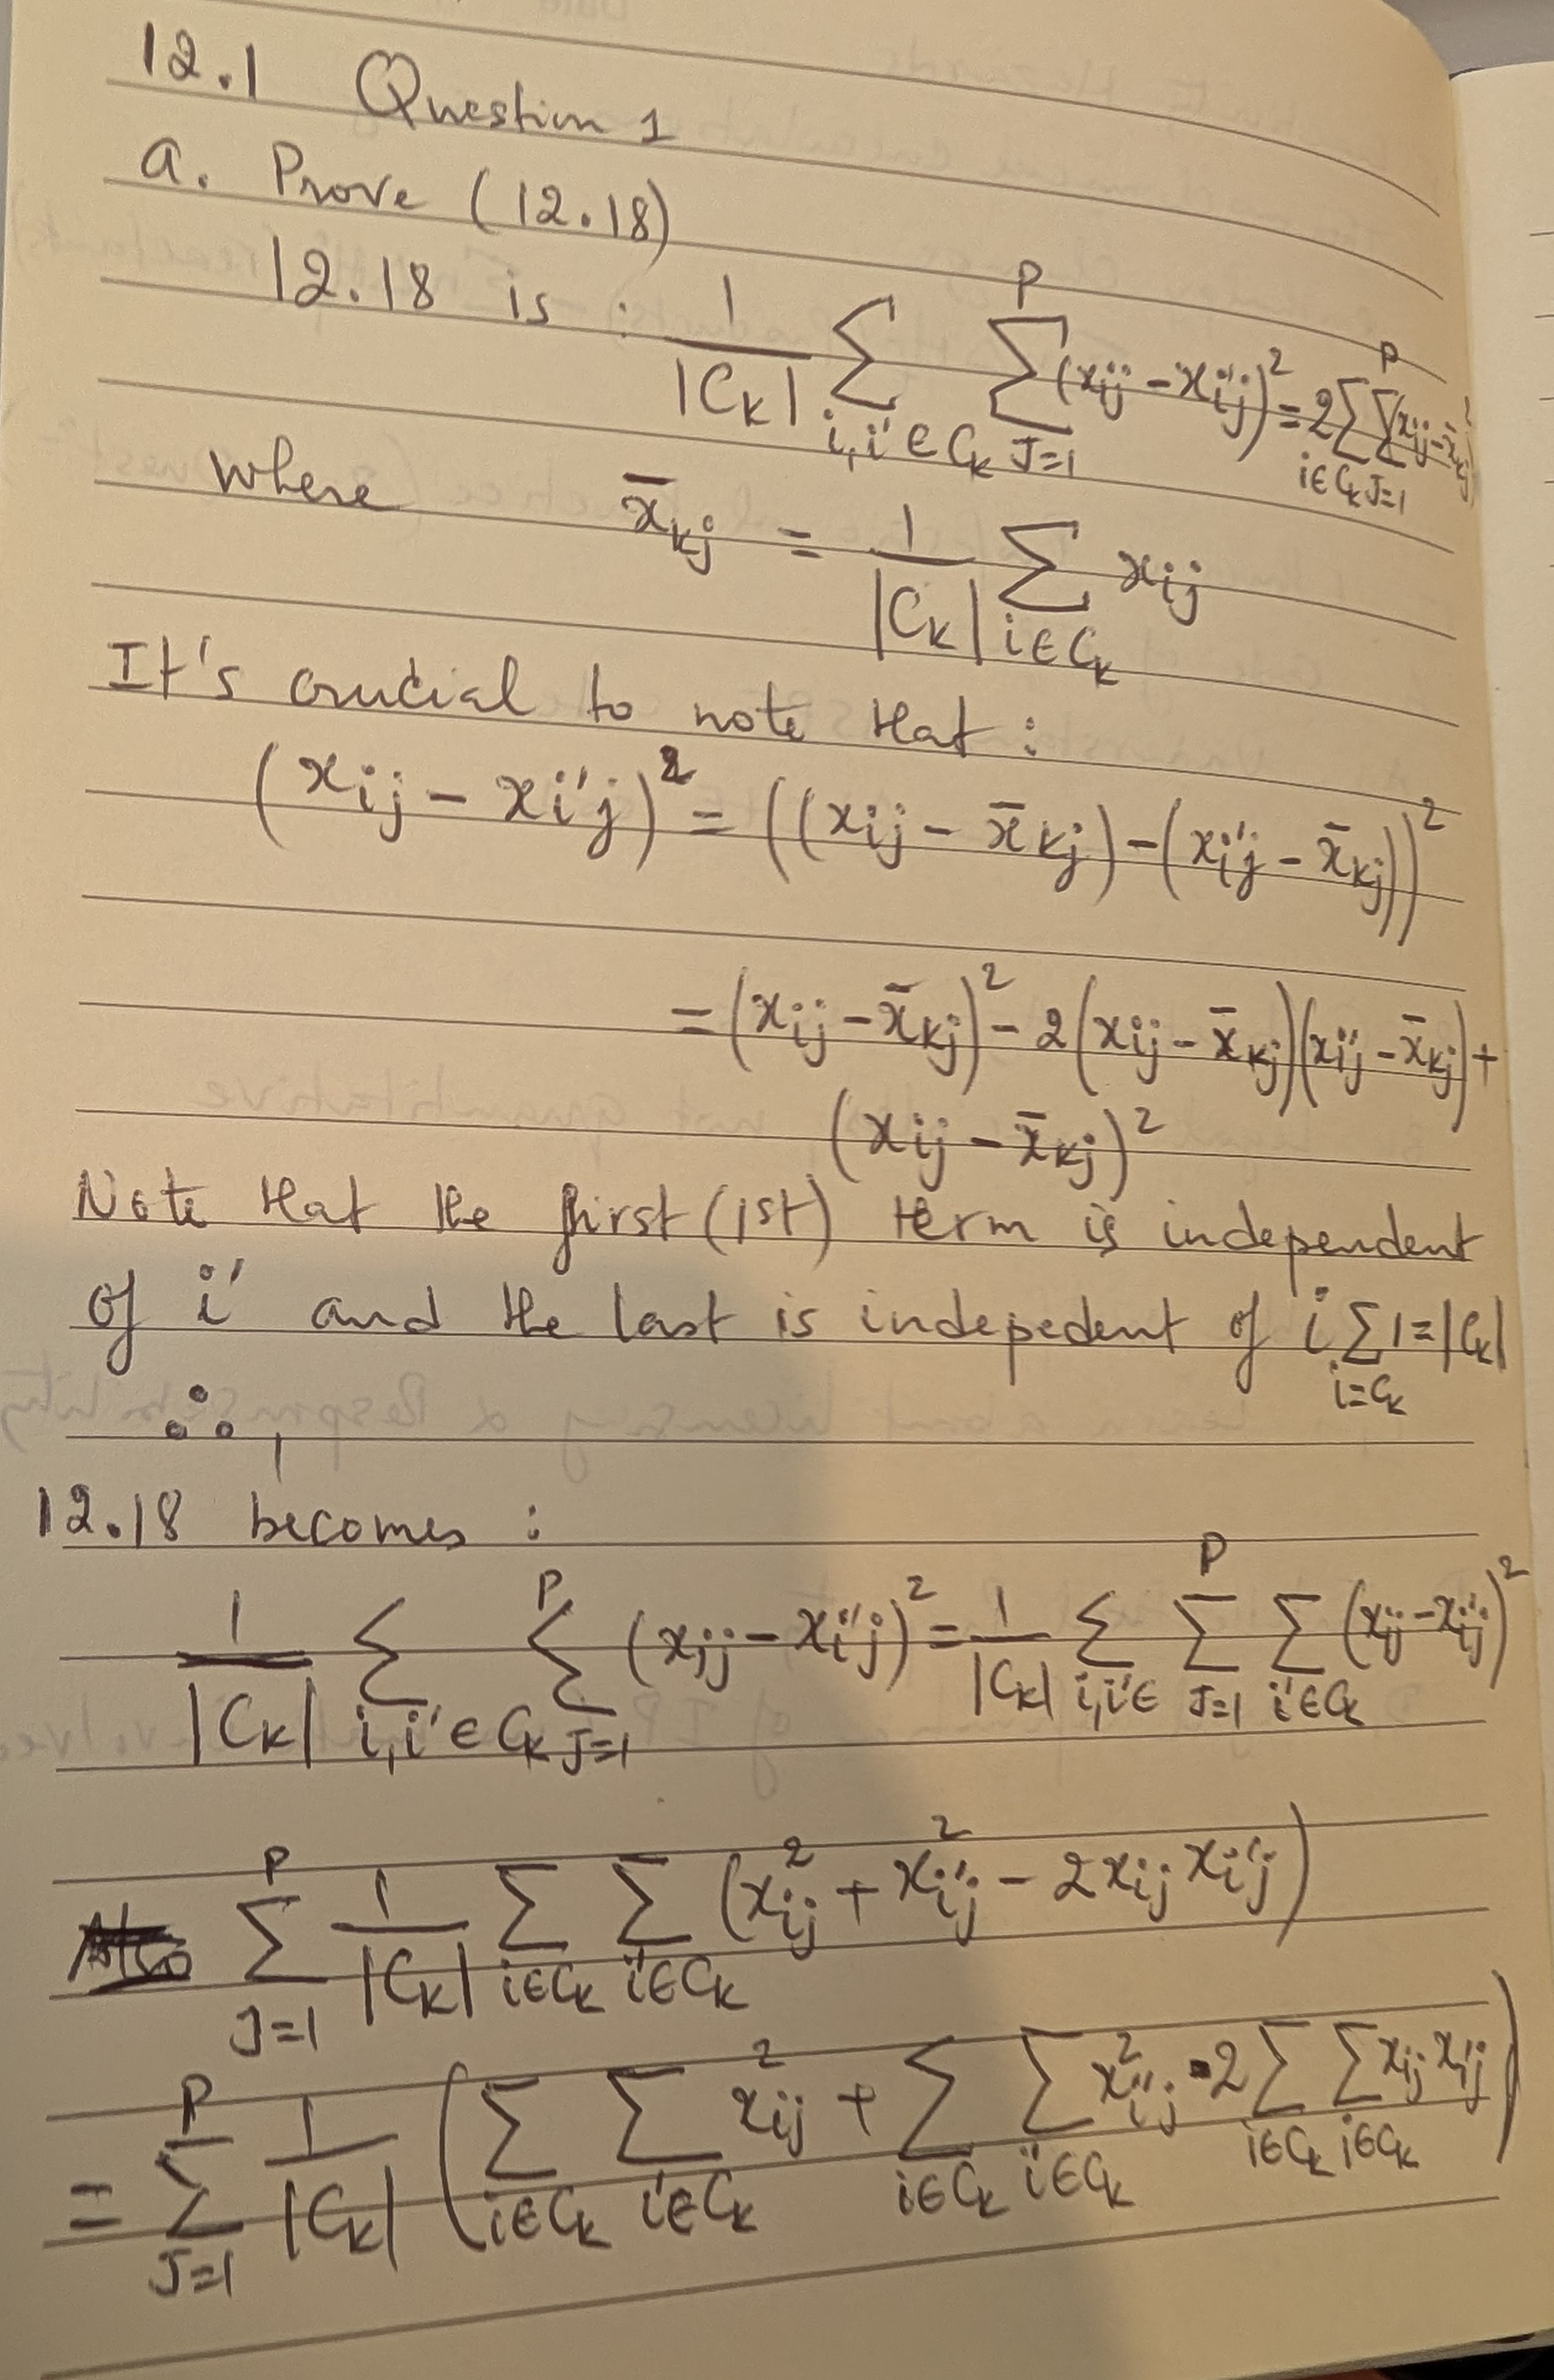 12.1 Question 1
a. Prove (12.18)
12.18 is : 1/|C_k| Σ_{i,i'∈C_k} Σ_{J=1}^{P} (x_ij − x_i'j)² = 2 Σ_{i∈C_k} Σ_{J=1}^{P} (x_ij − x̄_kj)²
where x̄_kj = 1/|C_k| Σ_{i∈C_k} x_ij
It's crucial to note that :
(x_ij − x_i'j)² = ((x_ij − x̄_kj) − (x_i'j − x̄_kj))²
= (x_ij − x̄_kj)² − 2(x_ij − x̄_kj)(x_i'j − x̄_kj) +
(x_ij − x̄_kj)²
Note that the first (1st) term is independent
of i' and the last is indepedent of i Σ_{i=C_k} 1 = |C_k|
∴,
12.18 becomes :
1/|C_k| Σ_{i,i'∈C_k} Σ_{J=1}^{P} (x_ij − x_i'j)² = 1/|C_k| Σ_{i,i'∈} Σ_{J=1}^{P} Σ_{i'∈C_k} (x_ij − x_i'j)²
Σ_{J=1}^{P} 1/|C_k| Σ_{i∈C_k} Σ_{i'∈C_k} (x²_ij + x²_i'j − 2x_ij x_i'j)
= Σ_{J=1}^{P} 1/|C_k| (Σ_{i∈C_k} Σ_{i'∈C_k} x²_ij + Σ_{i∈C_k} Σ_{i'∈C_k} x²_i'j - 2 Σ_{i∈C_k} Σ_{i∈C_k} x_ij x_i'j)